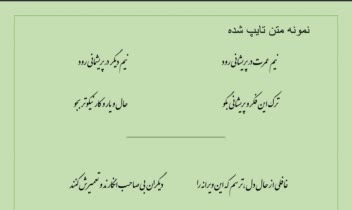 نمونه متن تایپ شده
نیم عمرت در پریشانی رود نیم دیگر در پشیمانی رود
ترک این فکر و پریشانی بگو حال و یار و کار نیکوتر بجو
غافلی از حال دل، ترسم که این ویرانه را دیگران بی صاحب انگارند و تعمیرش کنند